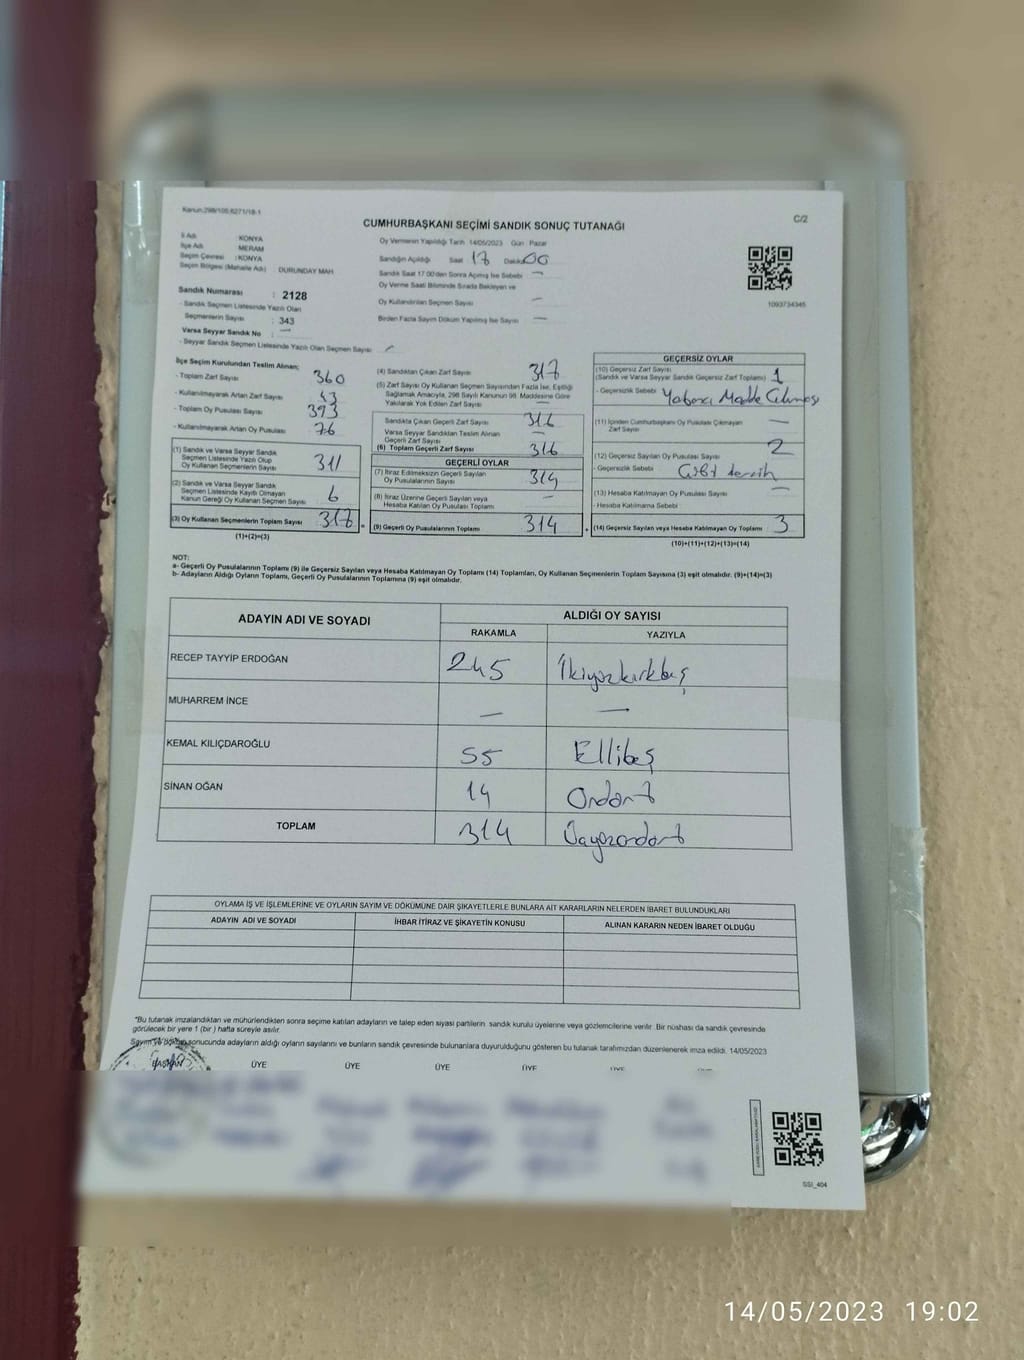 Kanun:298/105;6271/18-1
C/2
CUMHURBAŞKANI SEÇİMİ SANDIK SONUÇ TUTANAĞI
İl Adı : KONYA
İlçe Adı : MERAM
Seçim Çevresi : KONYA
Seçim Bölgesi (Mahalle Adı) : DURUNDAY MAH
Sandık Numarası : 2128
- Sandık Seçmen Listesinde Yazılı Olan
Seçmenlerin Sayısı : 343
Varsa Seyyar Sandık No : —
- Seyyar Sandık Seçmen Listesinde Yazılı Olan Seçmen Sayısı :
Oy Vermenin Yapıldığı Tarih 14/05/2023 Gün Pazar
Sandığın Açıldığı Saat 17 Dakika 00
Sandık Saat 17:00'den Sonra Açılmış İse Sebebi —
Oy Verme Saati Bitiminde Sırada Bekleyen ve
Oy Kullandırılan Seçmen Sayısı —
Birden Fazla Sayım Döküm Yapılmış İse Sayısı —
1093734345
İlçe Seçim Kurulundan Teslim Alınan;
- Toplam Zarf Sayısı 360
- Kullanılmayarak Artan Zarf Sayısı 43
- Toplam Oy Pusulası Sayısı 393
- Kullanılmayarak Artan Oy Pusulası 76
(1) Sandık ve Varsa Seyyar Sandık
Seçmen Listesinde Yazılı Olup
Oy Kullanan Seçmenlerin Sayısı 311
(2) Sandık ve Varsa Seyyar Sandık
Seçmen Listesinde Kayıtlı Olmayan
Kanun Gereği Oy Kullanan Seçmen Sayısı 6
(3) Oy Kullanan Seçmenlerin Toplam Sayısı 317
(1)+(2)=(3)
(4) Sandıktan Çıkan Zarf Sayısı 317
(5) Zarf Sayısı Oy Kullanan Seçmen Sayısından Fazla İse, Eşitliği
Sağlamak Amacıyla, 298 Sayılı Kanunun 98. Maddesine Göre
Yakılarak Yok Edilen Zarf Sayısı —
Sandıkta Çıkan Geçerli Zarf Sayısı 316
Varsa Seyyar Sandıktan Teslim Alınan
Geçerli Zarf Sayısı —
(6) Toplam Geçerli Zarf Sayısı 316
GEÇERLİ OYLAR
(7) İtiraz Edilmeksizin Geçerli Sayılan
Oy Pusulasının Sayısı 314
(8) İtiraz Üzerine Geçerli Sayılan veya
Hesaba Katılan Oy Pusulası Toplamı —
(9) Geçerli Oy Pusulalarının Toplamı 314
GEÇERSİZ OYLAR
(10) Geçersiz Zarf Sayısı
(Sandık ve Varsa Seyyar Sandık Geçersiz Zarf Toplamı) 1
- Geçersizlik Sebebi Yabancı Madde Çıkması
(11) İçinden Cumhurbaşkanı Oy Pusulası Çıkmayan
Zarf Sayısı —
(12) Geçersiz Sayılan Oy Pusulası Sayısı 2
- Geçersizlik Sebebi Çift tercih
(13) Hesaba Katılmayan Oy Pusulası Sayısı —
- Hesaba Katılmama Sebebi
(14) Geçersiz Sayılan veya Hesaba Katılmayan Oy Toplamı 3
(10)+(11)+(12)+(13)=(14)
NOT:
a- Geçerli Oy Pusulalarının Toplamı (9) ile Geçersiz Sayılan veya Hesaba Katılmayan Oy Toplamı (14) Toplamları, Oy Kullanan Seçmenlerin Toplam Sayısına (3) eşit olmalıdır. (9)+(14)=(3)
b- Adayların Aldığı Oyların Toplamı, Geçerli Oy Pusulalarının Toplamına (9) eşit olmalıdır.
ADAYIN ADI VE SOYADI ALDIĞI OY SAYISI
RAKAMLA YAZIYLA
RECEP TAYYİP ERDOĞAN 245 İkiyüzkırkbeş
MUHARREM İNCE — —
KEMAL KILIÇDAROĞLU 55 Ellibeş
SİNAN OĞAN 14 Ondört
TOPLAM 314 Üçyüzondört
OYLAMA İŞ VE İŞLEMLERİNE VE OYLARIN SAYIM VE DÖKÜMÜNE DAİR ŞİKAYETLERLE BUNLARA AİT KARARLARIN NELERDEN İBARET BULUNDUKLARI
ADAYIN ADI VE SOYADI İHBAR İTİRAZ VE ŞİKAYETİN KONUSU ALINAN KARARIN NEDEN İBARET OLDUĞU
"Bu tutanak imzalandıktan ve mühürlendikten sonra seçime katılan adayların ve talep eden siyasi partilerin sandık kurulu üyelerine veya gözlemcilerine verilir. Bir nüshası da sandık çevresinde
görülecek bir yere 1 (bir) hafta süreyle asılır.
Sayım ve döküm sonucunda adayların aldığı oyların sayılarını ve bunların sandık çevresinde bulunanlara duyurulduğunu gösteren bu tutanak tarafımızdan düzenlenerek imza edildi. 14/05/2023
BAŞKAN ÜYE ÜYE ÜYE ÜYE ÜYE ÜYE
SSI_404
14/05/2023 19:02